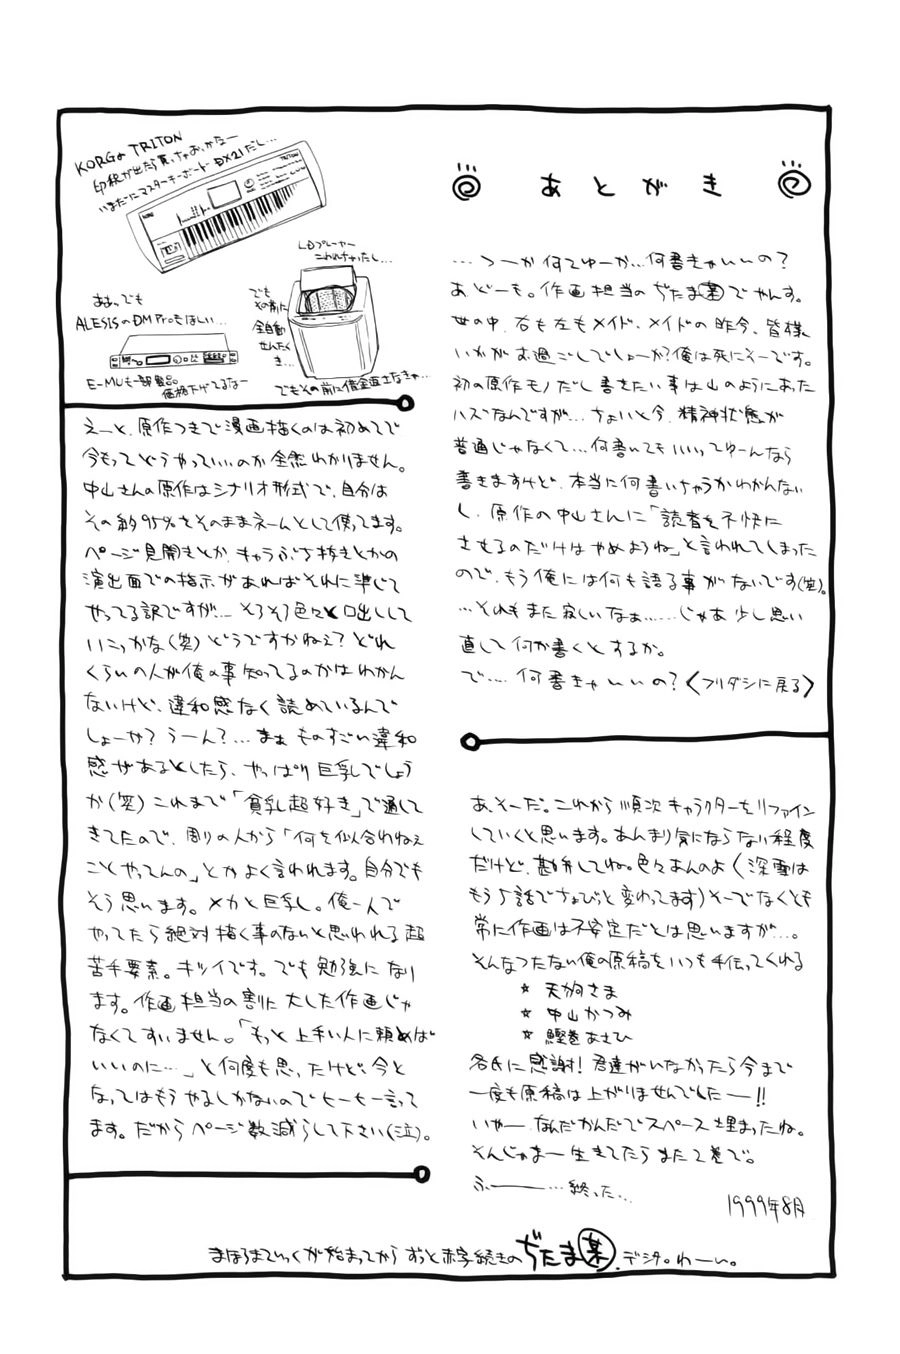 あとがき
…つーか何てゆーか…何書きゃいいの?
あどーも。作画担当のぢたま某でやんす。
世の中、右も左もメイド、メイドの昨今、皆様
いかがお過ごしでしょーか?俺は死にそーです。
初の原作モノだし書きたい事は山のようにあった
ハズなんですが…ちょいと今、精神状態が
普通じゃなくて…何書いてもいいってゆーんなら
書きますけど、本当に何書いちゃうかわかんない
し、原作の中山さんに「読者を不快に
させるのだけはやめようね」と言われてしまった
ので、もう俺には何も語る事がないです(笑)。
…それもまた寂しいなぁ……じゃあ少し思い
直して何か書くとするか。
で…。何書きゃいいの?〈フリダシに戻る〉
KORGのTRITON
印税が出たら買っちゃおっかなー
いまだにマスターキーボードDX21だし…
TRITON
KORG
LDプレーヤー
こわれちゃったし…
ああ、でも
ALESISのDM Proもほしい…
E-MUも一部製品
価格下げてるなー
でも
その前に
全自動
せんたく
き…
でもその前に借金返さなきゃ…
えーと、原作つきで漫画描くのは初めてで
今もってどうやっていいのか全然わかりません。
中山さんの原作はシナリオ形式で、自分は
その約95%をそのままネームとして使ってます。
ページ見開きとか、キャラぶち抜きとかの
演出面での指示があればそれに準じて
やってる訳ですが…そろそろ色々と口出しして
いこっかな(笑)どうですかねぇ?どれ
くらいの人が俺の事知ってるのかはわかん
ないけど、違和感なく読めているんで
しょーか?うーん?…まぁものすごい違和
感があるとしたら、やっぱり巨乳でしょう
か(笑)これまで「貧乳超好き」で通して
きてたので、周りの人から「何を似合わねぇ
ことやってんの」とかよく言われます。自分でも
そう思います。メカと巨乳し。俺一人で
やってたら絶対描く事のないと思われる超
苦手要素。キツイです。でも勉強になり
ます。作画担当の割に大した作画じゃ
なくてすいません。「もっと上手い人に頼めば
いいのに…」と何度も思ったけど、今と
なってはもうやるしかないのでヒーヒー言って
ます。だからページ数減らして下さい(泣)。
あそーだ。これから順次キャラクターをリファイン
していくと思います。あんまり気にならない程度
だけど、勘弁してね。色々あんのよ(深雪は
もう5話でちょびっと変わってます)そーでなくとも
常に作画は不安定だとは思いますが…。
そんなつたない俺の原稿をいつも手伝ってくれる
☆ 天朔さま
☆ 中山かつみ
☆ 鰹巻あさひ
各氏に感謝!君達がいなかったら今まで
一度も原稿は上がりませんでしたー!!
いやーなんだかんだでスペース埋まったね。
そんじゃまー生きてたらまた2巻で。
ふー――…終った…
1999年8月
まほろまてぃっくが始まってからずっと赤字続きのぢたま某.デシタ。わーい。